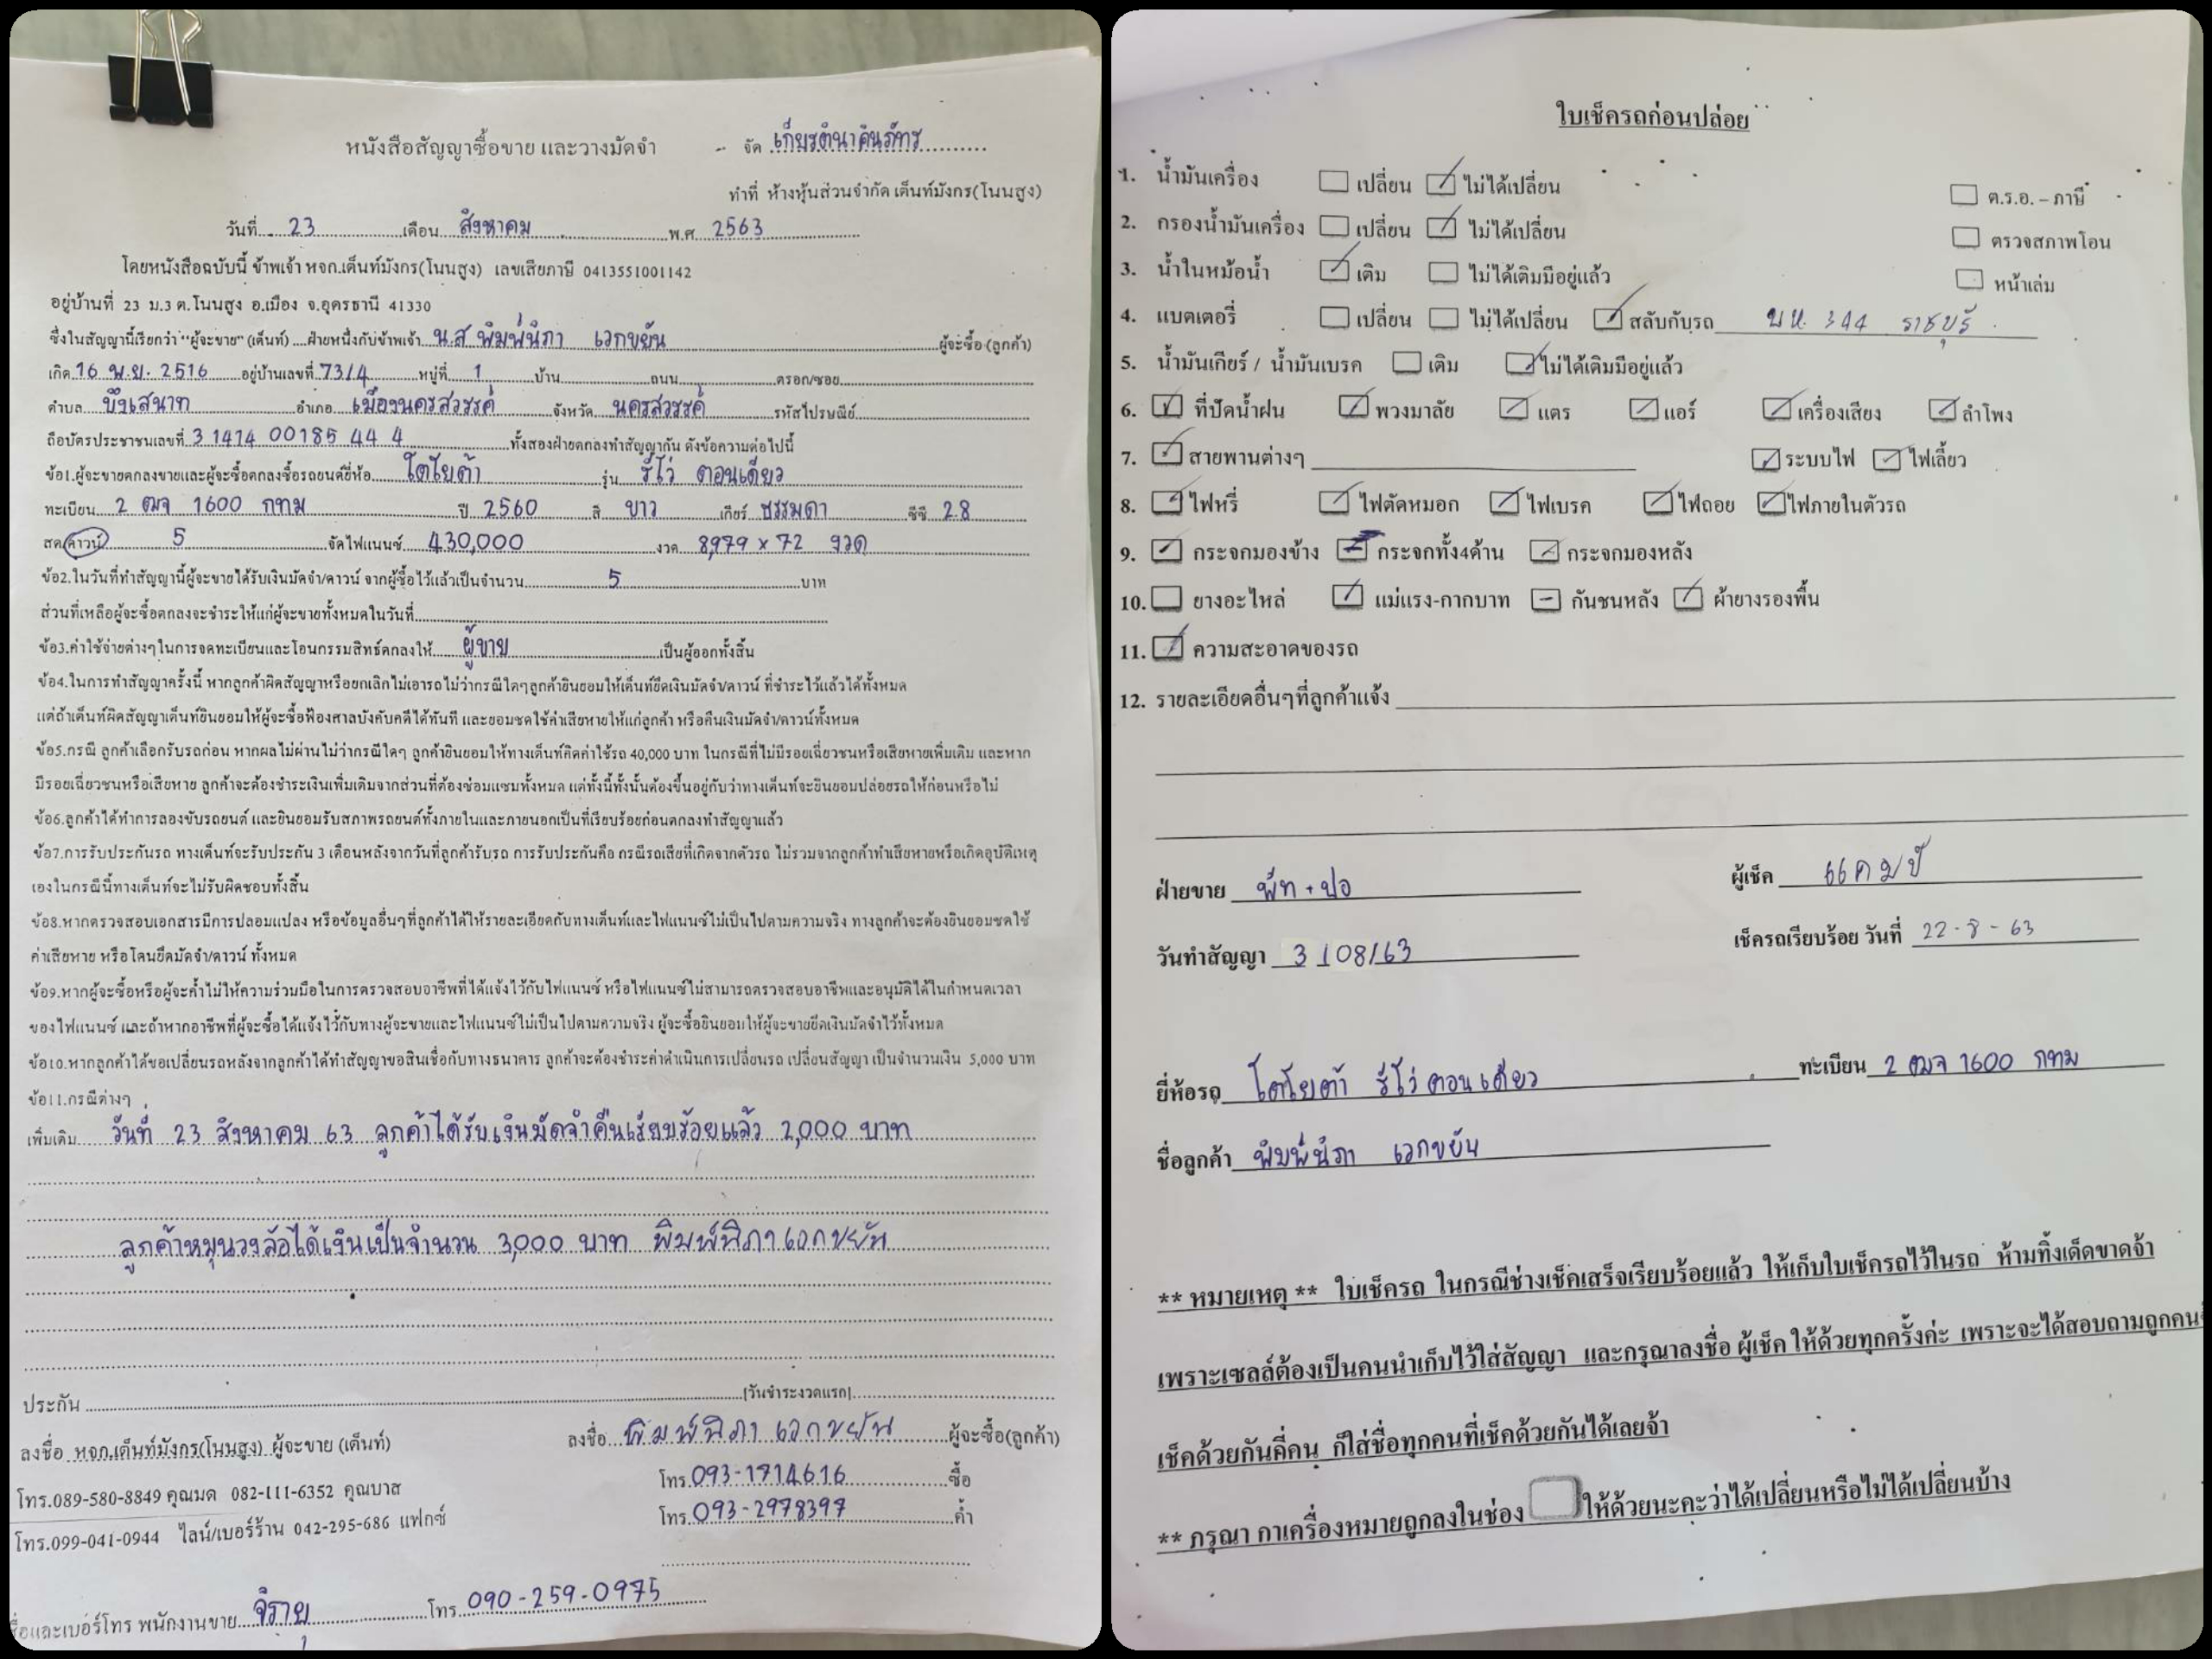 หนังสือสัญญาซื้อขาย และวางมัดจำ - จัด เกียรตินาคินภัทร
ทำที่ ห้างหุ้นส่วนจำกัด เต็นท์มังกร(โนนสูง)
วันที่ 23 เดือน สิงหาคม พ.ศ. 2563
โดยหนังสือฉบับนี้ ข้าพเจ้า หจก.เต็นท์มังกร(โนนสูง) เลขเสียภาษี 0413551001142
อยู่บ้านที่ 23 ม.3 ต.โนนสูง อ.เมือง จ.อุดรธานี 41330
ซึ่งในสัญญานี้เรียกว่า "ผู้จะขาย" (เต็นท์) ....ฝ่ายหนึ่งกับข้าพเจ้า น.ส พิมพ์นิภา เวกขยัน ผู้จะซื้อ (ลูกค้า)
เกิด 16 พ.ย. 2516 อยู่บ้านเลขที่ 73/4 หมู่ที่ 1 บ้าน ถนน ตรอก/ซอย
ตำบล บึงเสนาท อำเภอ เมืองนครสวรรค์ จังหวัด นครสวรรค์ รหัสไปรษณีย์
ถือบัตรประชาชนเลขที่ 3 1414 00185 44 4 ทั้งสองฝ่ายตกลงทำสัญญากัน ดังข้อความต่อไปนี้
ข้อ1.ผู้จะขายตกลงขายและผู้จะซื้อตกลงซื้อรถยนต์ยี่ห้อ โตโยต้า รุ่น รีโว่ ตอนเดียว
ทะเบียน 2 ฒจ 1600 กทม ปี 2560 สี ขาว เกียร์ ธรรมดา ซีซี 2.8
สด/ดาวน์ 5 จัดไฟแนนซ์ 430,000 งวด 8,979 × 72 งวด
ข้อ2.ในวันที่ทำสัญญานี้ผู้จะขายได้รับเงินมัดจำ/ดาวน์ จากผู้ซื้อไว้แล้วเป็นจำนวน 5 บาท
ส่วนที่เหลือผู้จะซื้อตกลงจะชำระให้แก่ผู้จะขายทั้งหมดในวันที่
ข้อ3.ค่าใช้จ่ายต่างๆในการจดทะเบียนและโอนกรรมสิทธ์ตกลงให้ ผู้ขาย เป็นผู้ออกทั้งสิ้น
ข้อ4.ในการทำสัญญาครั้งนี้ หากลูกค้าผิดสัญญาหรือยกเลิกไม่เอารถไม่ว่ากรณีใดๆลูกค้ายินยอมให้เต็นท์ยึดเงินมัดจำ/ดาวน์ ที่ชำระไว้แล้วได้ทั้งหมด
แต่ถ้าเต็นท์ผิดสัญญาเต็นท์ยินยอมให้ผู้จะซื้อฟ้องศาลบังคับคดีได้ทันที และยอมชดใช้ค่าเสียหายให้แก่ลูกค้า หรือคืนเงินมัดจำ/ดาวน์ทั้งหมด
ข้อ5.กรณี ลูกค้าเลือกรับรถก่อน หากผลไม่ผ่านไม่ว่ากรณีใดๆ ลูกค้ายินยอมให้ทางเต็นท์คิดค่าใช้รถ 40,000 บาท ในกรณีที่ไม่มีรอยเฉี่ยวชนหรือเสียหายเพิ่มเติม และหาก
มีรอยเฉี่ยวชนหรือเสียหาย ลูกค้าจะต้องชำระเงินเพิ่มเติมจากส่วนที่ต้องซ่อมแซมทั้งหมด แต่ทั้งนี้ทั้งนั้นต้องขึ้นอยู่กับว่าทางเต็นท์จะยินยอมปล่อยรถให้ก่อนหรือไม่
ข้อ6.ลูกค้าได้ทำการลองขับรถยนต์ และยินยอมรับสภาพรถยนต์ทั้งภายในและภายนอกเป็นที่เรียบร้อยก่อนตกลงทำสัญญาแล้ว
ข้อ7.การรับประกันรถ ทางเต็นท์จะรับประกัน 3 เดือนหลังจากวันที่ลูกค้ารับรถ การรับประกันคือ กรณีรถเสียที่เกิดจากตัวรถ ไม่รวมจากลูกค้าทำเสียหายหรือเกิดอุบัติเหตุ
เองในกรณีนี้ทางเต็นท์จะไม่รับผิดชอบทั้งสิ้น
ข้อ8.หากตรวจสอบเอกสารมีการปลอมแปลง หรือข้อมูลอื่นๆที่ลูกค้าได้ให้รายละเอียดกับทางเต็นท์และไฟแนนซ์ไม่เป็นไปตามความจริง ทางลูกค้าจะต้องยินยอมชดใช้
ค่าเสียหาย หรือโดนยึดมัดจำ/ดาวน์ ทั้งหมด
ข้อ9.หากผู้จะซื้อหรือผู้จะค้ำไม่ให้ความร่วมมือในการตรวจสอบอาชีพที่ได้แจ้งไว้กับไฟแนนซ์ หรือไฟแนนซ์ไม่สามารถตรวจสอบอาชีพและอนุมัติได้ในกำหนดเวลา
ของไฟแนนซ์ และถ้าหากอาชีพที่ผู้จะซื้อได้แจ้งไว้กับทางผู้จะขายและไฟแนนซ์ไม่เป็นไปตามความจริง ผู้จะซื้อยินยอมให้ผู้จะขายยึดเงินมัดจำไว้ทั้งหมด
ข้อ10.หากลูกค้าได้ขอเปลี่ยนรถหลังจากลูกค้าได้ทำสัญญาขอสินเชื่อกับทางธนาคาร ลูกค้าจะต้องชำระค่าดำเนินการเปลี่ยนรถ เปลี่ยนสัญญา เป็นจำนวนเงิน 5,000 บาท
ข้อ11.กรณีต่างๆ
เพิ่มเติม วันที่ 23 สิงหาคม 63 ลูกค้าได้รับเงินมัดจำคืนเรียบร้อยแล้ว 2,000 บาท
ลูกค้าหมุนวงล้อได้เงินเป็นจำนวน 3,000 บาท พิมพ์นิภา เวกขยัน
ประกัน (วันชำระงวดแรก)
ลงชื่อ หจก.เต็นท์มังกร(โนนสูง) ผู้จะขาย (เต็นท์) ลงชื่อ พิมพ์นิภา เวกขยัน ผู้จะซื้อ(ลูกค้า)
โทร.089-580-8849 คุณมด 082-111-6352 คุณบาส โทร. 093-1714616 ซื้อ
โทร.099-041-0944 ไลน์/เบอร์ร้าน 042-295-686 แฟกซ์ โทร. 093-2978397 ค้ำ
ชื่อและเบอร์โทร พนักงานขาย โทร. 090-259-0975
ใบเช็ครถก่อนปล่อย
1. น้ำมันเครื่อง เปลี่ยน ไม่ได้เปลี่ยน ต.ร.อ. – ภาษี
2. กรองน้ำมันเครื่อง เปลี่ยน ไม่ได้เปลี่ยน ตรวจสภาพโอน
3. น้ำในหม้อน้ำ เติม ไม่ได้เติมมีอยู่แล้ว หน้าเล่ม
4. แบตเตอรี่ เปลี่ยน ไม่ได้เปลี่ยน สลับกับรถ 344 ราชบุรี
5. น้ำมันเกียร์ / น้ำมันเบรค เติม ไม่ได้เติมมีอยู่แล้ว
6. ที่ปัดน้ำฝน พวงมาลัย แตร แอร์ เครื่องเสียง ลำโพง
7. สายพานต่างๆ ระบบไฟ ไฟเลี้ยว
8. ไฟหรี่ ไฟตัดหมอก ไฟเบรค ไฟถอย ไฟภายในตัวรถ
9. กระจกมองข้าง กระจกทั้ง4ด้าน กระจกมองหลัง
10. ยางอะไหล่ แม่แรง-กากบาท กันชนหลัง ผ้ายางรองพื้น
11. ความสะอาดของรถ
12. รายละเอียดอื่นๆที่ลูกค้าแจ้ง
ฝ่ายขาย พัท + ปอ ผู้เช็ค
วันทำสัญญา 3 / 08/63 เช็ครถเรียบร้อย วันที่ 22 - 8 - 63
ยี่ห้อรถ โตโยต้า รีโว่ ตอนเดียว ทะเบียน 2 ฒจ 1600 กทม
ชื่อลูกค้า พิมพ์นิภา เวกขยัน
** หมายเหตุ ** ใบเช็ครถ ในกรณีช่างเช็คเสร็จเรียบร้อยแล้ว ให้เก็บใบเช็ครถไว้ในรถ ห้ามทิ้งเด็ดขาดจ้า
เพราะเซลล์ต้องเป็นคนนำเก็บไว้ใส่สัญญา และกรุณาลงชื่อ ผู้เช็ค ให้ด้วยทุกครั้งค่ะ เพราะจะได้สอบถามถูกคน
เช็คด้วยกันกี่คน ก็ใส่ชื่อทุกคนที่เช็คด้วยกันได้เลยจ้า
** กรุณา กาเครื่องหมายถูกลงในช่อง ให้ด้วยนะคะว่าได้เปลี่ยนหรือไม่ได้เปลี่ยนบ้าง